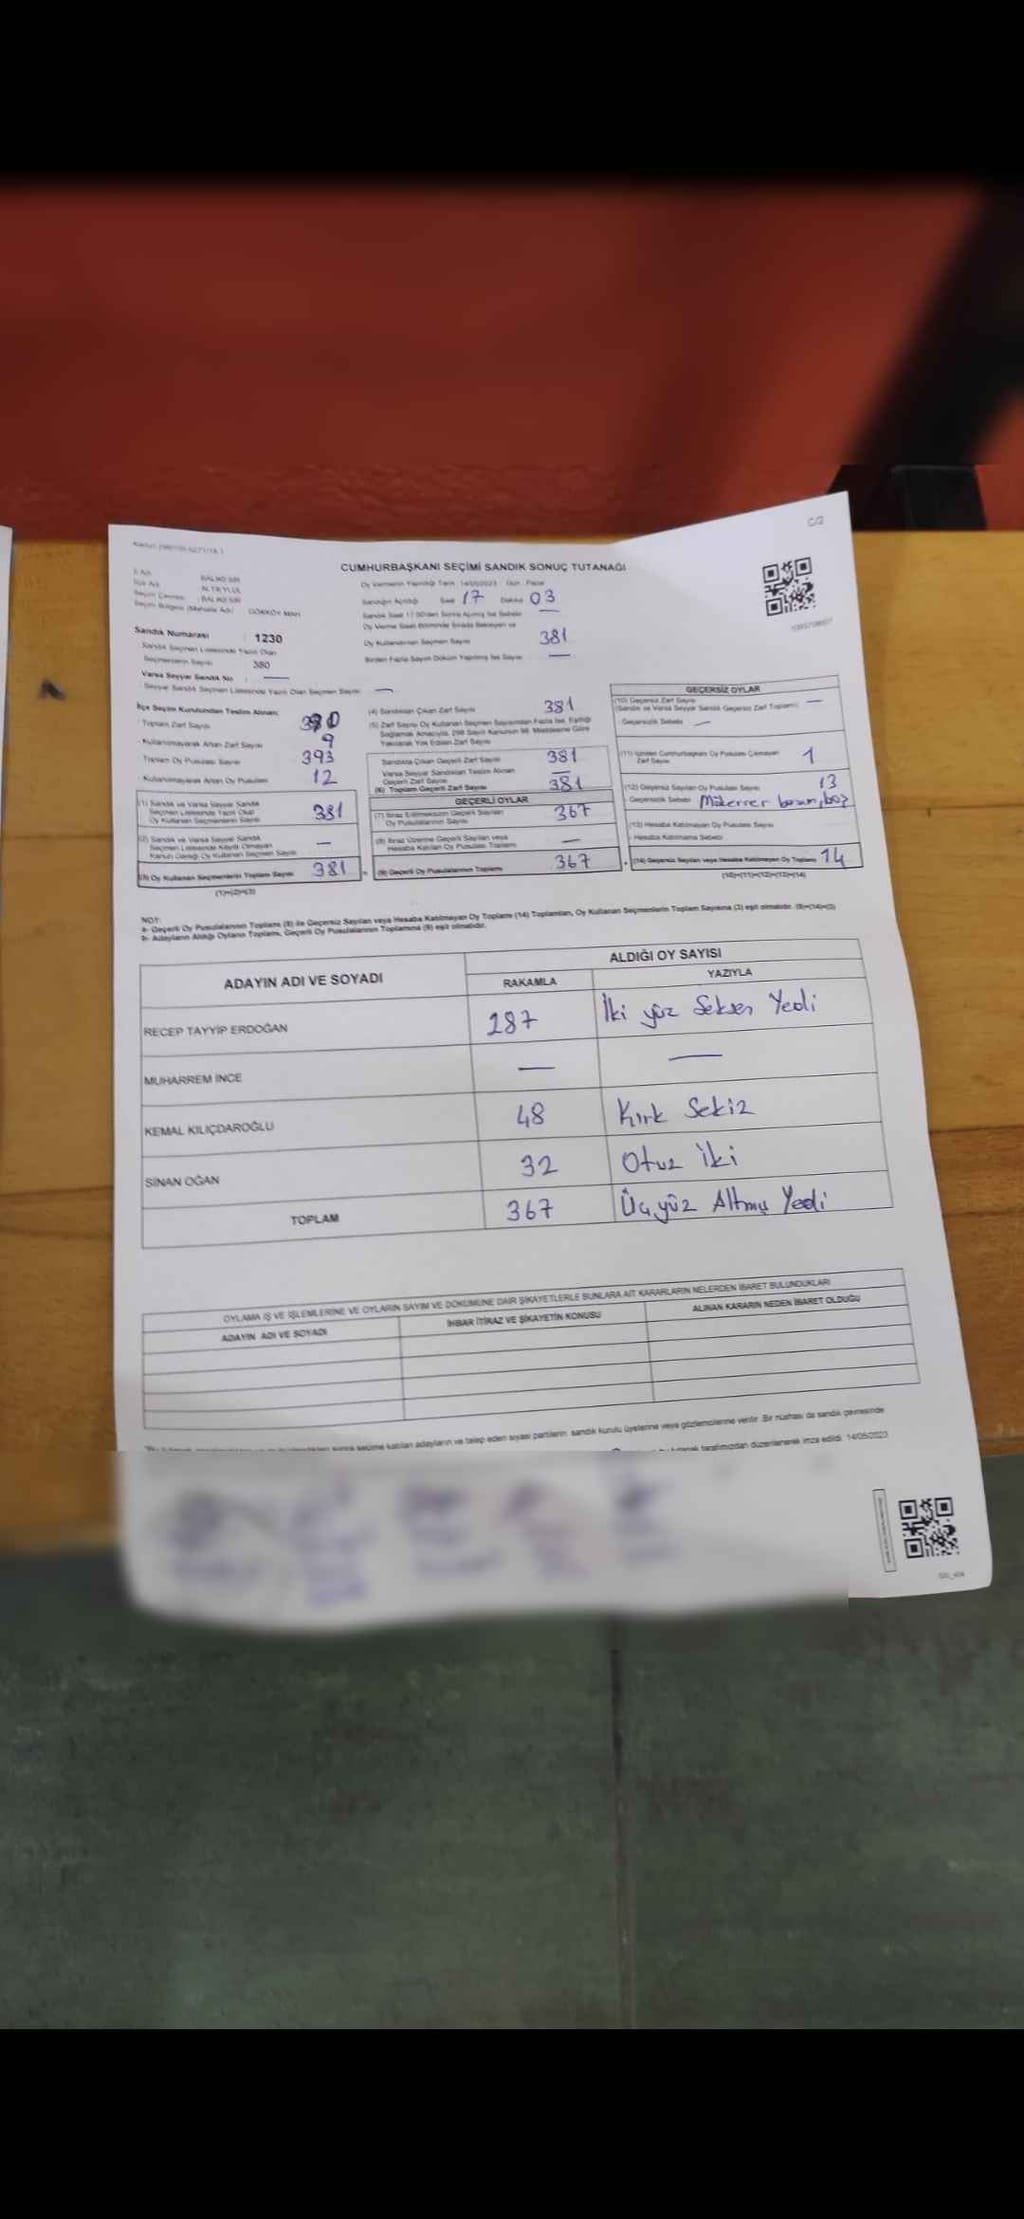 C/2
CUMHURBAŞKANI SEÇİMİ SANDIK SONUÇ TUTANAĞI
İl Adı : BALIKESİR
İlçe Adı : ALTIEYLÜL
Seçim Çevresi : BALIKESİR
Seçim Bölgesi (Mahalle Adı) : GÖKKÖY MAH.
Sandık Numarası : 1230
Sandık Seçmen Listesinde Yazılı Olan
Seçmenlerin Sayısı 380
Varsa Seyyar Sandık No : —
Seyyar Sandık Seçmen Listesinde Yazılı Olan Seçmen Sayısı —
Oy Vermenin Yapıldığı Tarih 14/05/2023 Gün Pazar
Sandığın Açıldığı Saat 17 Dakika 03
Sandık Saat 17.00'den Sonra Açılmış İse Sebebi —
Oy Verme Saati Bitiminde Sırada Bekleyen ve
Oy Kullandırılan Seçmen Sayısı 381
Birden Fazla Sayım Döküm Yapılmış İse Sayısı —
İlçe Seçim Kurulundan Teslim Alınan;
Toplam Zarf Sayısı 390
Kullanılmayarak Artan Zarf Sayısı 9
Toplam Oy Pusulası Sayısı 393
Kullanılmayarak Artan Oy Pusulası 12
(1) Sandık ve Varsa Seyyar Sandık
Seçmen Listesinde Yazılı Olup
Oy Kullanan Seçmenlerin Sayısı 381
(2) Sandık ve Varsa Seyyar Sandık
Seçmen Listesinde Kayıtlı Olmayan
Kanun Gereği Oy Kullanan Seçmen Sayısı —
(3) Oy Kullanan Seçmenlerin Toplam Sayısı 381
(1)+(2)=(3)
(4) Sandıktan Çıkan Zarf Sayısı 381
(5) Zarf Sayısı Oy Kullanan Seçmen Sayısından Fazla İse, Eşitliği
Sağlamak Amacıyla, 298 Sayılı Kanunun 98. Maddesine Göre
Yakılarak Yok Edilen Zarf Sayısı
Sandıkta Çıkan Geçerli Zarf Sayısı 381
Varsa Seyyar Sandıktan Teslim Alınan
Geçerli Zarf Sayısı —
(6) Toplam Geçerli Zarf Sayısı 381
GEÇERLİ OYLAR
(7) İtiraz Edilmeksizin Geçerli Sayılan
Oy Pusulalarının Sayısı 367
(8) İtiraz Üzerine Geçerli Sayılan veya
Hesaba Katılan Oy Pusulası Toplamı —
(9) Geçerli Oy Pusulalarının Toplamı 367
GEÇERSİZ OYLAR
(10) Geçersiz Zarf Sayısı
(Sandık ve Varsa Seyyar Sandık Geçersiz Zarf Toplamı) —
Geçersizlik Sebebi —
(11) İçinden Cumhurbaşkanı Oy Pusulası Çıkmayan
Zarf Sayısı 1
(12) Geçersiz Sayılan Oy Pusulası Sayısı 13
Geçersizlik Sebebi Mükerrer basım, boş
(13) Hesaba Katılmayan Oy Pusulası Sayısı
Hesaba Katılmama Sebebi
(14) Geçersiz Sayılan veya Hesaba Katılmayan Oy Toplamı 14
(10)+(11)+(12)+(13)=(14)
NOT:
a- Geçerli Oy Pusulalarının Toplamı (9) ile Geçersiz Sayılan veya Hesaba Katılmayan Oy Toplamı (14) Toplamları, Oy Kullanan Seçmenlerin Toplam Sayısına (3) eşit olmalıdır. (9)+(14)=(3)
b- Adayların Aldığı Oyların Toplamı, Geçerli Oy Pusulalarının Toplamına (9) eşit olmalıdır.
ADAYIN ADI VE SOYADI
ALDIĞI OY SAYISI
RAKAMLA YAZIYLA
RECEP TAYYİP ERDOĞAN 287 İki yüz Seksen Yedi
MUHARREM İNCE — —
KEMAL KILIÇDAROĞLU 48 Kırk Sekiz
SİNAN OĞAN 32 Otuz İki
TOPLAM 367 Üçyüz Altmış Yedi
OYLAMA İŞ VE İŞLEMLERİNE VE OYLARIN SAYIM VE DÖKÜMÜNE DAİR ŞİKAYETLERLE BUNLARA AİT KARARLARIN NELERDEN İBARET BULUNDUKLARI
ADAYIN ADI VE SOYADI İHBAR İTİRAZ VE ŞİKAYETİN KONUSU ALINAN KARARIN NEDEN İBARET OLDUĞU
seçime katılan adayların ve talep eden siyasi partilerin sandık kurulu üyelerine veya gözlemcilerine verilir. Bir nüshası da sandık çevresinde
tarafımızdan düzenlenerek imza edildi. 14/05/2023